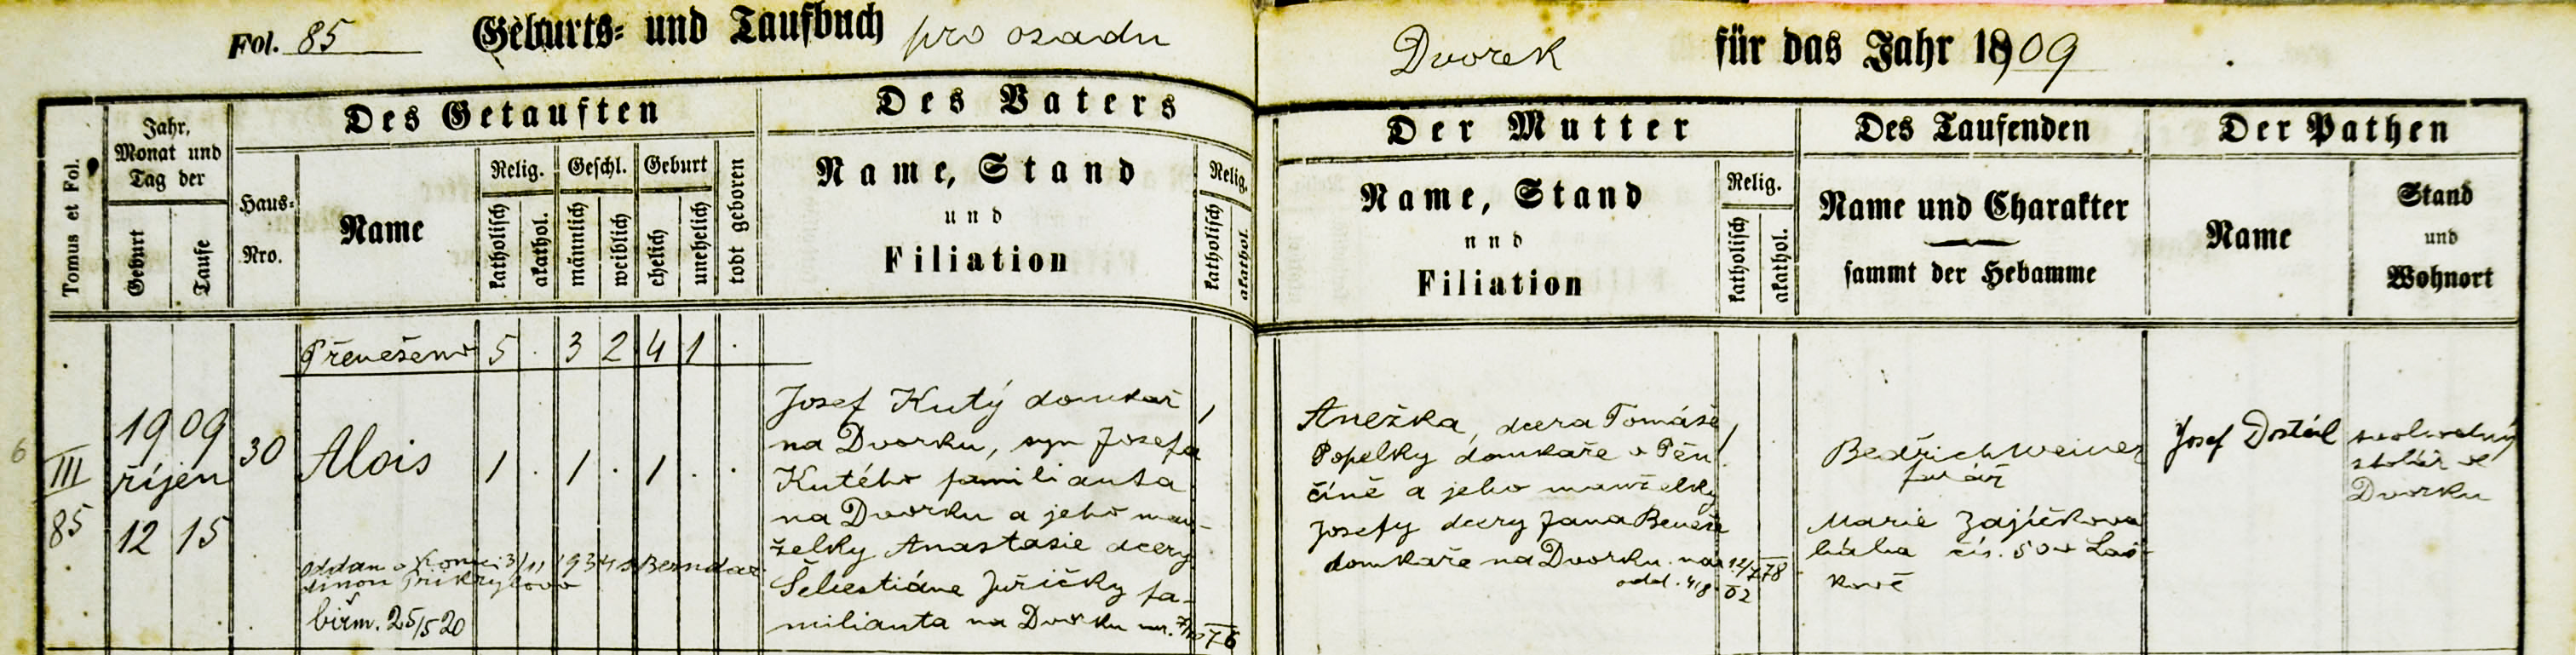 Fol. 85 Geburts- und Taufbuch pro osadu Dvorek für das Jahr 1909
Tomus et Fol.
Jahr, Monat und Tag der
Geburt
Taufe
Des Getauften
Haus-Nro.
Name
Relig.
katholisch
akathol.
Geschl.
männlich
weiblich
Geburt
ehelich
unehelich
todt geboren
Des Vaters
Name, Stand
und
Filiation
Relig.
katholisch
akathol.
Der Mutter
Name, Stand
und
Filiation
Relig.
katholisch
akathol.
Des Taufenden
Name und Charakter
sammt der Hebamme
Der Pathen
Name
Stand
und
Wohnort
Přenešeno 5 . 3 2 4 1 .
6
III
85
1909
říjen
12 15
30
Alois
1 . 1 . 1 . .
oddan 3/11 1934 s Berndar-
dinou Přikrylovo
biřm. 25/5 20
Josef Kutý domkař
na Dvorku, syn Josefa
Kutého familianta
na Dvorku a jeho man-
želky Anastasie dcery
Šebestiána Juřičky fa-
milianta na Dvorku nar. 7/10 76
1
Anežka, dcera Tomáše
Popelky domkaře v Pěn-
číně a jeho manželky
Josefy dcery Jana Beneše
domkaře na Dvorku nar 12/7 78
odd. 4/8 02
1
Bedřich Weiner
farář
Marie Zajíčkova
bába čís. 50 v Laš-
kově
Josef Dostál
svobodný
stolář ve
Dvorku